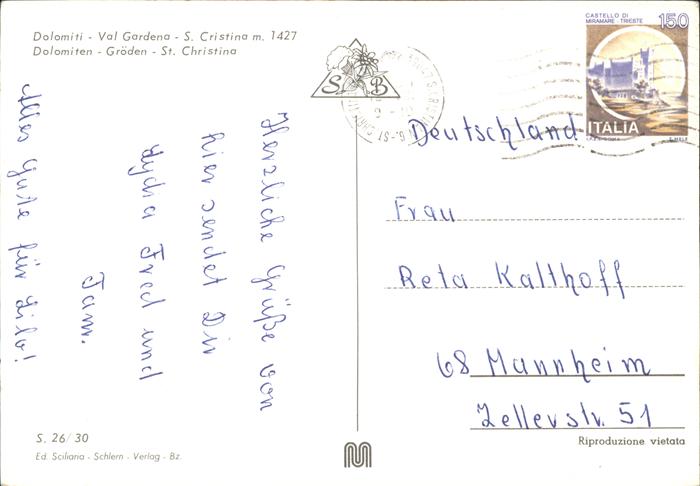 Dolomiti - Val Gardena - S. Cristina m. 1427
Dolomiten - Gröden - St. Christina
S B
CASTELLO DI
MIRAMARE - TRIESTE
150
ITALIA
Herzliche Grüße von
hier sendet Dir
Lydia Fred und
Fam.
Alles Gute für Lilo!
Deutschland
Frau
Reta Kalthoff
68 Mannheim
Zellerstr. 51
S. 26/30
Ed. Sciliaria - Schlern - Verlag - Bz.
Riproduzione vietata